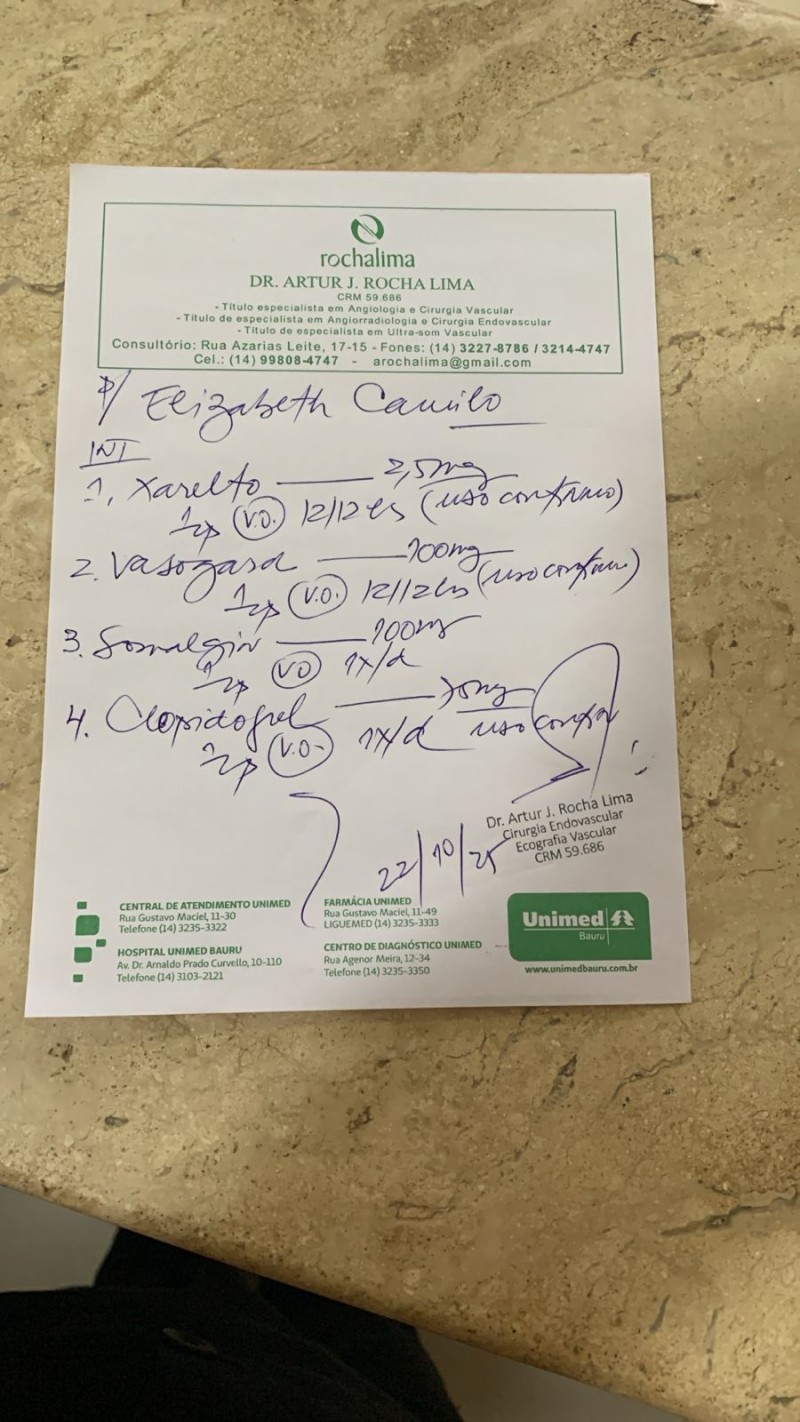 rochalima
DR. ARTUR J. ROCHA LIMA
CRM 59.686
- Título especialista em Angiologia e Cirurgia Vascular
- Título de especialista em Angiorradiologia e Cirurgia Endovascular
- Título de especialista em Ultra-som Vascular
Consultório: Rua Azarias Leite, 17-15 - Fones: (14) 3227-8786 / 3214-4747
Cel.: (14) 99808-4747 - arochalima@gmail.com
P/ Elizabeth Camilo
INT
1, Xarelto 2,5mg
1cp V.O. 12/12hs (uso contínuo)
2. Vasogard 100mg
1cp V.O. 12/12hs (uso contínuo)
3. Somalgin 100mg
1cp VO 1x/d
4. Clopidogrel 75mg
1cp V.O. 1x/d uso contínuo
22/10/25
Dr. Artur J. Rocha Lima
Cirurgia Endovascular
Ecografia Vascular
CRM 59.686
CENTRAL DE ATENDIMENTO UNIMED
Rua Gustavo Maciel, 11-30
Telefone (14) 3235-3322
HOSPITAL UNIMED BAURU
Av. Dr. Arnaldo Prado Curvello, 10-110
Telefone (14) 3103-2121
FARMÁCIA UNIMED
Rua Gustavo Maciel, 11-49
LIGUEMED (14) 3235-3333
CENTRO DE DIAGNÓSTICO UNIMED
Rua Agenor Meira, 12-34
Telefone (14) 3235-3350
Unimed
Bauru
www.unimedbauru.com.br